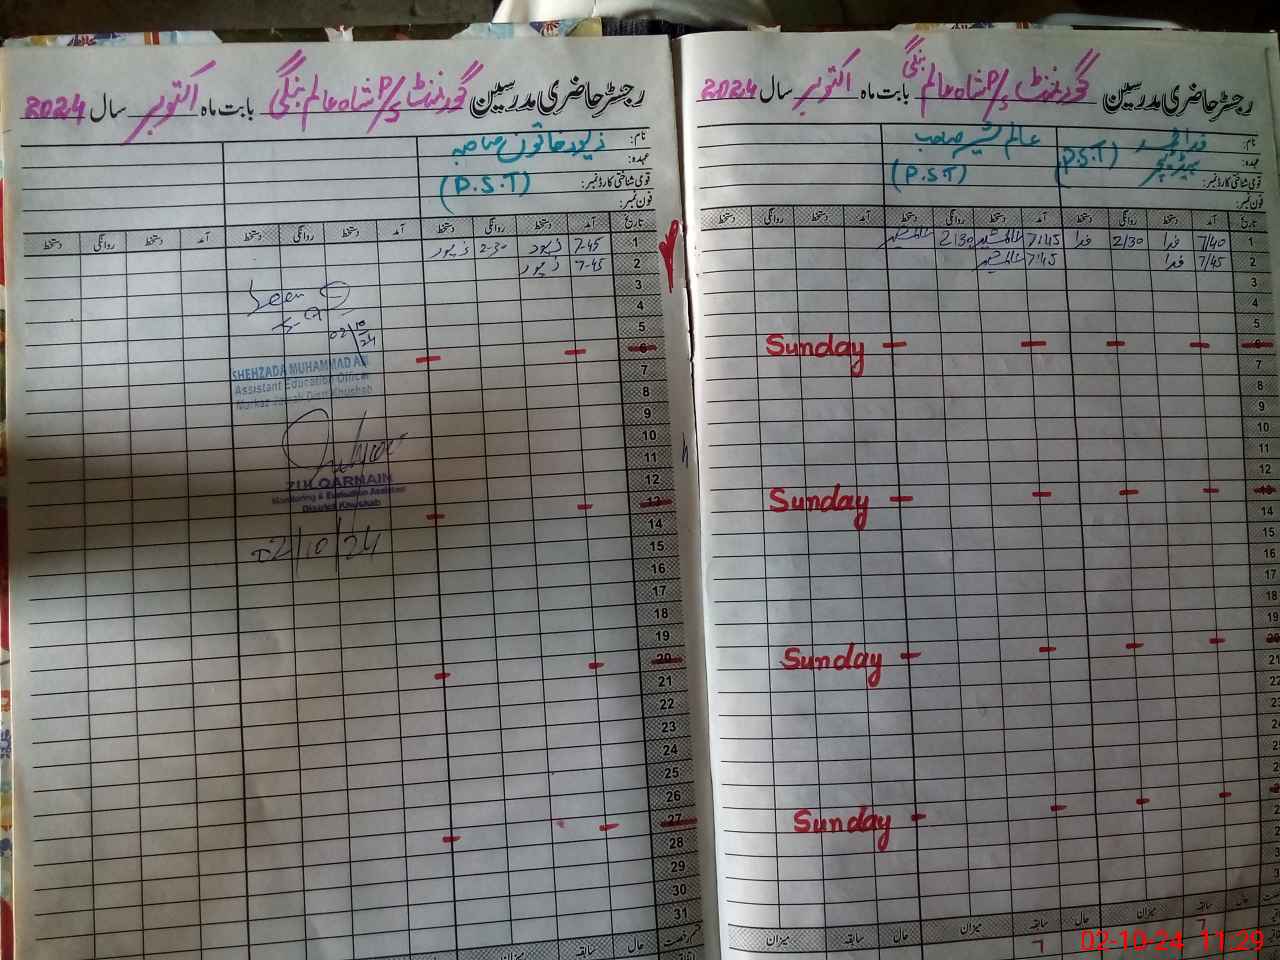 رجسٹر حاضری مدرسین گورنمنٹ P/S شاہ عالم بنگی بابت ماہ اکتوبر سال 2024
نام: فدا محمد عالم شیر صاحب
عہدہ: ہیڈ ٹیچر (P.S.T) (P.S.T)
قومی شناختی کارڈ نمبر:
فون نمبر:
تاریخ آمد دستخط روانگی دستخط آمد دستخط روانگی دستخط آمد دستخط روانگی دستخط
1 7/40 فدا 2/30 فدا 7:45 عالم شیر 2:30 عالم شیر
2 7/45 فدا 7:45 عالم شیر
3
4
5
6 Sunday
7
8
9
10
11
12
13 Sunday
14
15
16
17
18
19
20 Sunday
21
22
Sunday
حال سابقہ میزان حال سابقہ میزان حال سابقہ میزان
رجسٹر حاضری مدرسین گورنمنٹ P/S شاہ عالم بنگی بابت ماہ اکتوبر سال 2024
نام: زیور خاتون صاحبہ
عہدہ:
قومی شناختی کارڈ نمبر: (P.S.T)
فون نمبر:
تاریخ آمد دستخط روانگی دستخط آمد دستخط روانگی دستخط آمد دستخط روانگی دستخط
1 7-45 زیور 2-30 زیور
2 7-45 زیور
3
4
5
6
7
8
9
10
11
12
13
14
15
16
17
18
19
20
21
22
23
24
25
26
27
28
29
30
31
حال سابقہ میزان
Seen
02/10/24
SHEHZADA MUHAMMAD ALI
Assistant Education Officer
Markaz Jabah Distt Khushab
ZULQARNAIN
Monitoring & Evaluation Assistant
District Khushab
02/10/24
02-10-24 11:29